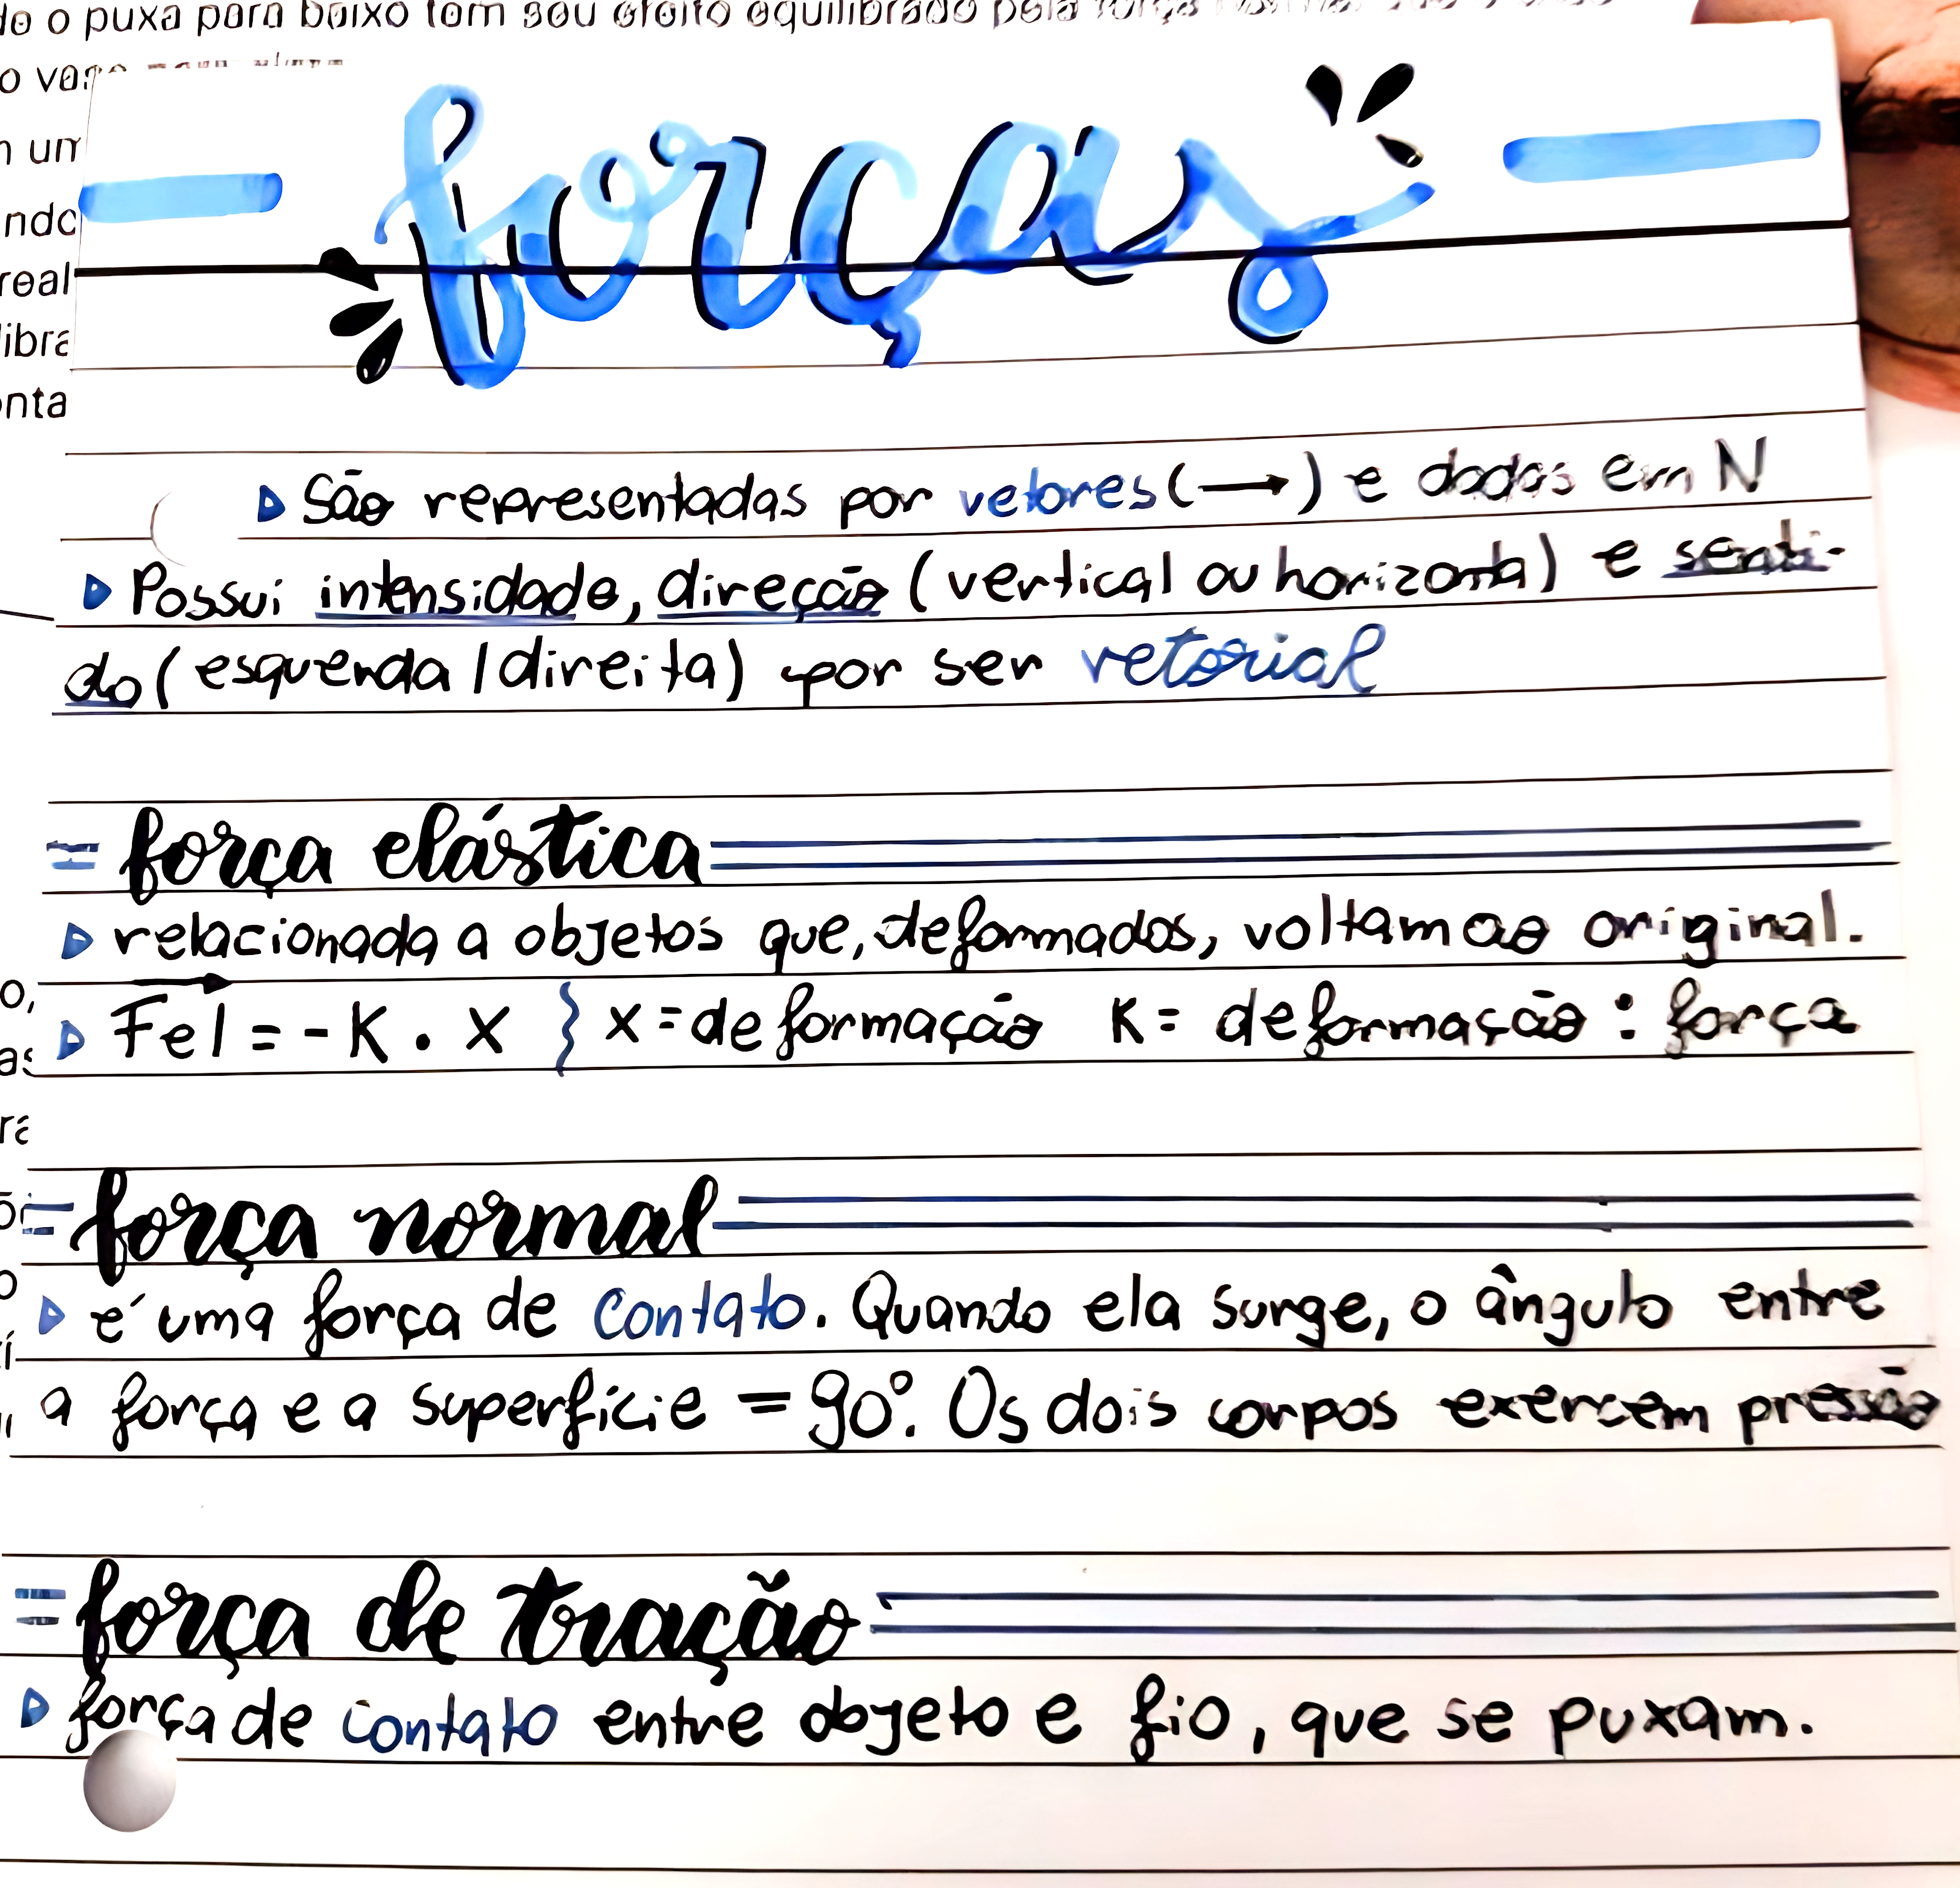 do o puxa para baixo tem seu efeito equilibrado pela força
o vaso
m um
ndo
real
libra
onta
forças
▷ São representadas por vetores (→) e dadas em N
▷ Possui intensidade, direção (vertical ou horizontal) e senti-
do (esquerda / direita) por ser vetorial
= força elástica
▷ relacionada a objetos que, deformados, voltam ao original.
▷ Fel = - K . X } X = deformação K = deformação : força
= força normal
▷ é uma força de contato. Quando ela surge, o ângulo entre
a força e a superfície = 90°. Os dois corpos exercem pressão
= força de tração
▷ força de contato entre objeto e fio, que se puxam.